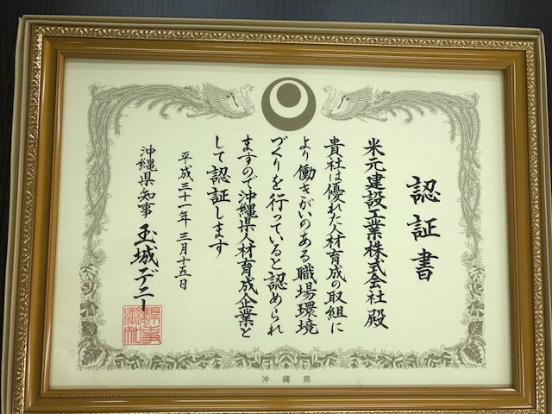 認証書
米元建設工業株式会社 殿
貴社は優れた人材育成の取組に
より働きがいのある職場環境
づくりを行っていると認められ
ますので沖縄県人材育成企業と
して認証します
平成三十一年 三月十五日
沖縄県知事 玉城デニー
沖縄県